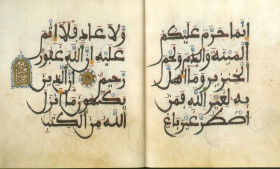 إنما حرم عليكم
الميتة والدم ولحم
الخنزير وما أهل
به لغير الله فمن
اضطر غير باغ
ولا عاد فلا إثم
عليه إن الله غفور
رحيم إن الذين
يكتمون ما أنزل
الله من الكتب